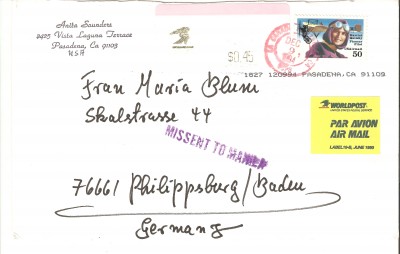 Anita Saunders
2425 Vista Laguna Terrace
Pasadena, Ca 91103
USA
$0.45
DEC
50
1627 120991 PASADENA, CA 91109
Frau Maria Blum
Skalstrasse 44
MISSENT TO MANILA
WORLDPOST
PAR AVION
AIR MAIL
LABEL 19-B, JUNE 1990
76661 Philippsburg/Baden
Germany